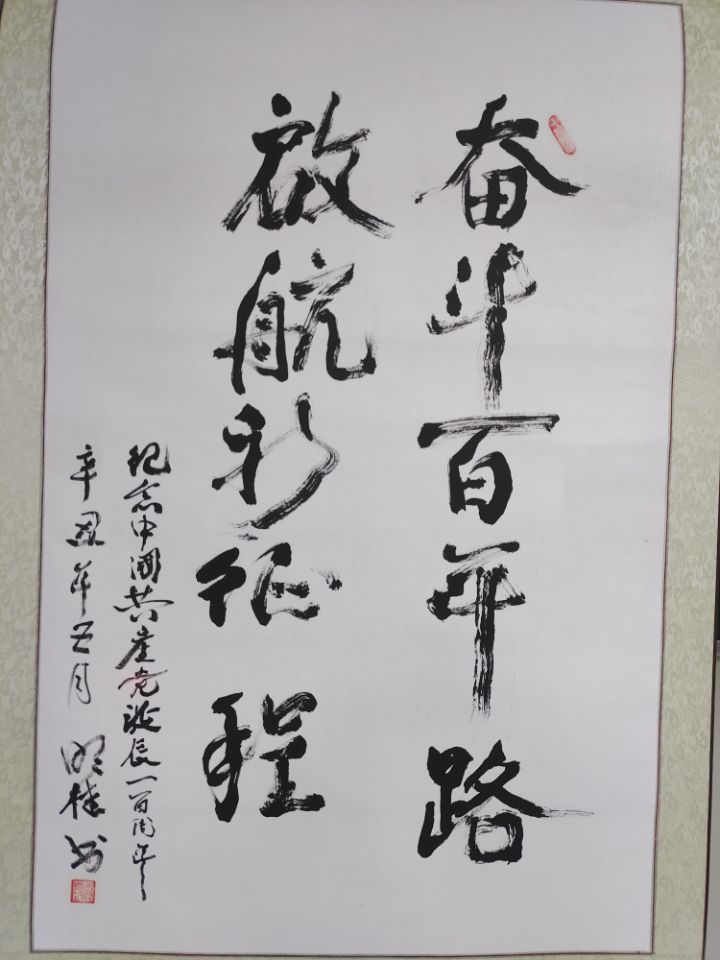 奋斗百年路
启航新征程
纪念中国共产党诞辰一百周年
辛丑年五月 明桂书